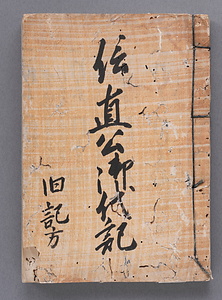 直公御代記
旧記方